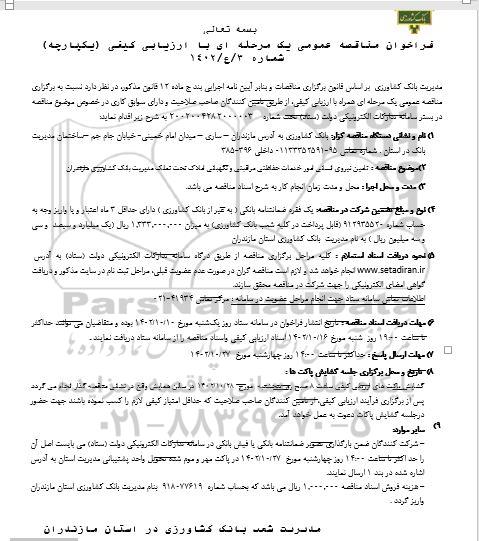 بانک کشاورزی
بسمه تعالی
فراخوان مناقصه عمومی یک مرحله ای با ارزیابی کیفی (یکپارچه)
شماره ۱۴۰۲/ع/۳
مدیریت بانک کشاورزی بر اساس قانون برگزاری مناقصات و بنابر آیین نامه اجرایی بند ج ماده ۱۲ قانون مذکور، در نظر دارد نسبت به برگزاری
مناقصه عمومی یک مرحله ای همراه با ارزیابی کیفی، از طریق تامین کنندگان صاحب صلاحیت و دارای سوابق کاری در خصوص موضوع مناقصه
در بستر سامانه تدارکات الکترونیکی دولت (ستاد) تحت شماره به شرح زیر اقدام نمایند:
۱) نام و نشانی دستگاه مناقصه گزار: بانک کشاورزی به آدرس مازندران – ساری – میدان امام خمینی- خیابان جام جم –ساختمان مدیریت
بانک در استان . شماره تماس ۹۵-۰۱۱۳۳۳۵۲۵۹۱ داخلی ۳۹۶-۳۸۵
۲) موضوع مناقصه : تامین نیروی انسانی امور خدمات حفاظتی مراقبتی و نگهبانی املاک تحت تملک مدیریت بانک کشاورزی مازندران
۳) مدت و محل اجرا : محل و مدت زمان انجام کار به شرح اسناد مناقصه می باشد.
۴) نوع و مبلغ تضمین شرکت در مناقصه: یک فقره ضمانتنامه بانکی ( به غیر از بانک کشاورزی ) دارای حداقل ۳ ماه اعتبار و یا واریز وجه به
حساب شماره ۹۱۲۹۳۵۵۲۰ (قابل پرداخت در کلیه شعب بانک کشاورزی) به میزان ۱,۳۳۳,۰۰۰,۰۰۰ ریال (یک میلیارد و سیصد و سی
و سه میلیون ریال ) به نام مدیریت بانک کشاورزی استان مازندران
۵) نحوه دریافت اسناد استعلام : کلیه مراحل برگزاری مناقصه از طریق درگاه سامانه تدارکات الکترونیکی دولت (ستاد) به آدرس
www.setadiran.ir انجام خواهد شد و لازم است مناقصه گران در صورت عدم عضویت قبلی، مراحل ثبت نام در سایت مذکور و دریافت
گواهی امضای الکترونیکی را جهت شرکت در مناقصه محقق سازند.
اطلاعات تماس سامانه ستاد جهت انجام مراحل عضویت در سامانه : مرکز تماس ۴۱۹۳۴-۰۲۱
۶) مهلت دریافت اسناد مناقصه : تاریخ انتشار فراخوان در سامانه ستاد روز یکشنبه مورخ ۱۴۰۲/۱۰/۱۰ بوده و متقاضیان می توانند حداکثر
تا ساعت ۱۹:۰۰ روز شنبه مورخ ۱۴۰۲/۱۰/۱۶ اسناد ارزیابی کیفی واسناد مناقصه را از سامانه ستاد دریافت نمایند.
۷) مهلت ارسال پاسخ : حداکثر تا ساعت ۱۴:۰۰ روز چهارشنبه مورخ ۱۴۰۲/۱۰/۲۷
۸) تاریخ و محل برگزاری جلسه گشایش پاکت ها :
گشایش پاکت های ارزیابی کیفی ساعت ۸ صبح روز پنجشنبه مورخ ۱۴۰۲/۱۰/۲۸ در سالن همایش واقع در نشانی مناقصه گذار انجام می گردد
پس از برگزاری فرآیند ارزیابی کیفی، از تامین کنندگان صاحب صلاحیت که حداقل امتیاز کیفی لازم را کسب نموده باشند جهت حضور
درجلسه گشایش پاکات دعوت به عمل خواهد آمد.
۹) سایر موارد:
– شرکت کنندگان ضمن بارگذاری تصویر ضمانتنامه بانکی یا فیش بانکی در سامانه تدارکات الکترونیکی دولت (ستاد) می بایست اصل آن
را حد اکثر تا ساعت ۱۴:۰۰ روز چهارشنبه مورخ ۱۴۰۲/۱۰/۲۷ در پاکت مهر و موم شده تحویل واحد پشتیبانی مدیریت استان به آدرس
اشاره شده در بند ۱ ارسال نمایند.
– هزینه فروش اسناد مناقصه ۱,۰۰۰,۰۰۰ ریال می باشد که بحساب شماره ۹۱۸۰۷۷۶۱۹ بنام مدیریت بانک کشاورزی استان مازندران
واریز گردد .
مدیریت شعب بانک کشاورزی در استان مازندران